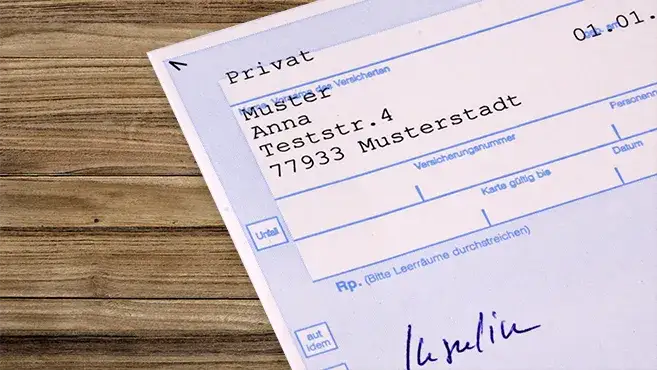 Privat
01.01.
Name, Vorname des Versicherten
Muster
Anna
Teststr.4
77933 Musterstadt
Versicherungsnummer
Personenn
Karte gültig bis
Datum
Unfall
Rp. (Bitte Leerräume durchstreichen)
aut
idem
Insulin